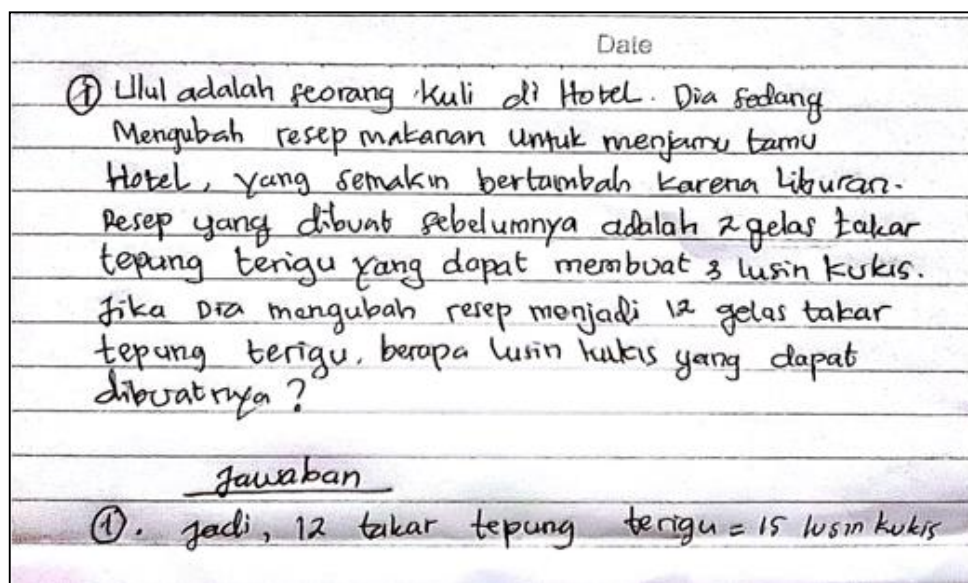 Date
① Ulul adalah seorang kuli di Hotel. Dia sedang
Mengubah resep makanan untuk menjamu tamu
Hotel, yang semakin bertambah karena Liburan.
Resep yang dibuat sebelumnya adalah 2 gelas takar
tepung terigu yang dapat membuat 3 lusin kukis.
Jika Dia mengubah resep menjadi 12 gelas takar
tepung terigu, berapa lusin kukis yang dapat
dibuatnya?
Jawaban
①. Jadi, 12 takar tepung terigu = 15 lusin kukis